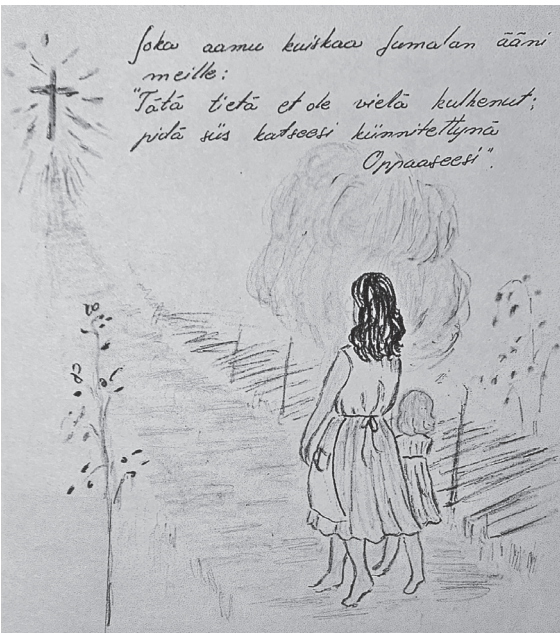 Joka aamu kuiskaa Jumalan ääni
meille:
"Tätä tietä et ole vielä kulkenut;
pidä siis katseesi kiinnitettynä
Oppaaseesi".